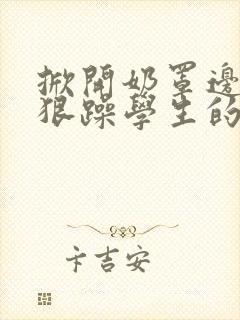 掀開奶罩邊
狠躁學生的
卡吉安